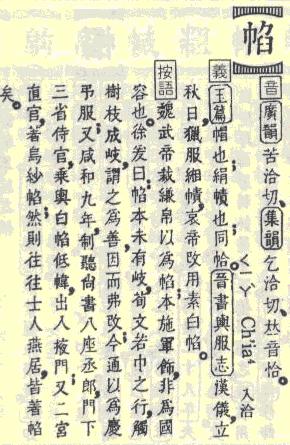 帢
音 廣韻 苦洽切、集韻 乞洽切、𠀤音恰。
ㄑㄧㄚ Ch'ia⁴ 入洽
義 玉篇 帽也；絹幘也，同恰。晉書輿服志 漢儀，立
秋日獵，服緗幘，哀帝改用素白帢。
按語 魏武帝裁縑帛以爲帢，本施軍飾，非爲國
容也。徐爰曰，帢本未有岐，荀文若巾之行，觸
樹枝成岐，謂之爲善，因而弗改，今通以爲慶
弔服。又咸和九年，制聽尙書八座丞郎，門下
三省侍官，乘輿白帢低幃，出入掖門；又二宮
直官，著烏紗帢；然則往往士人燕居，皆著帢
矣。